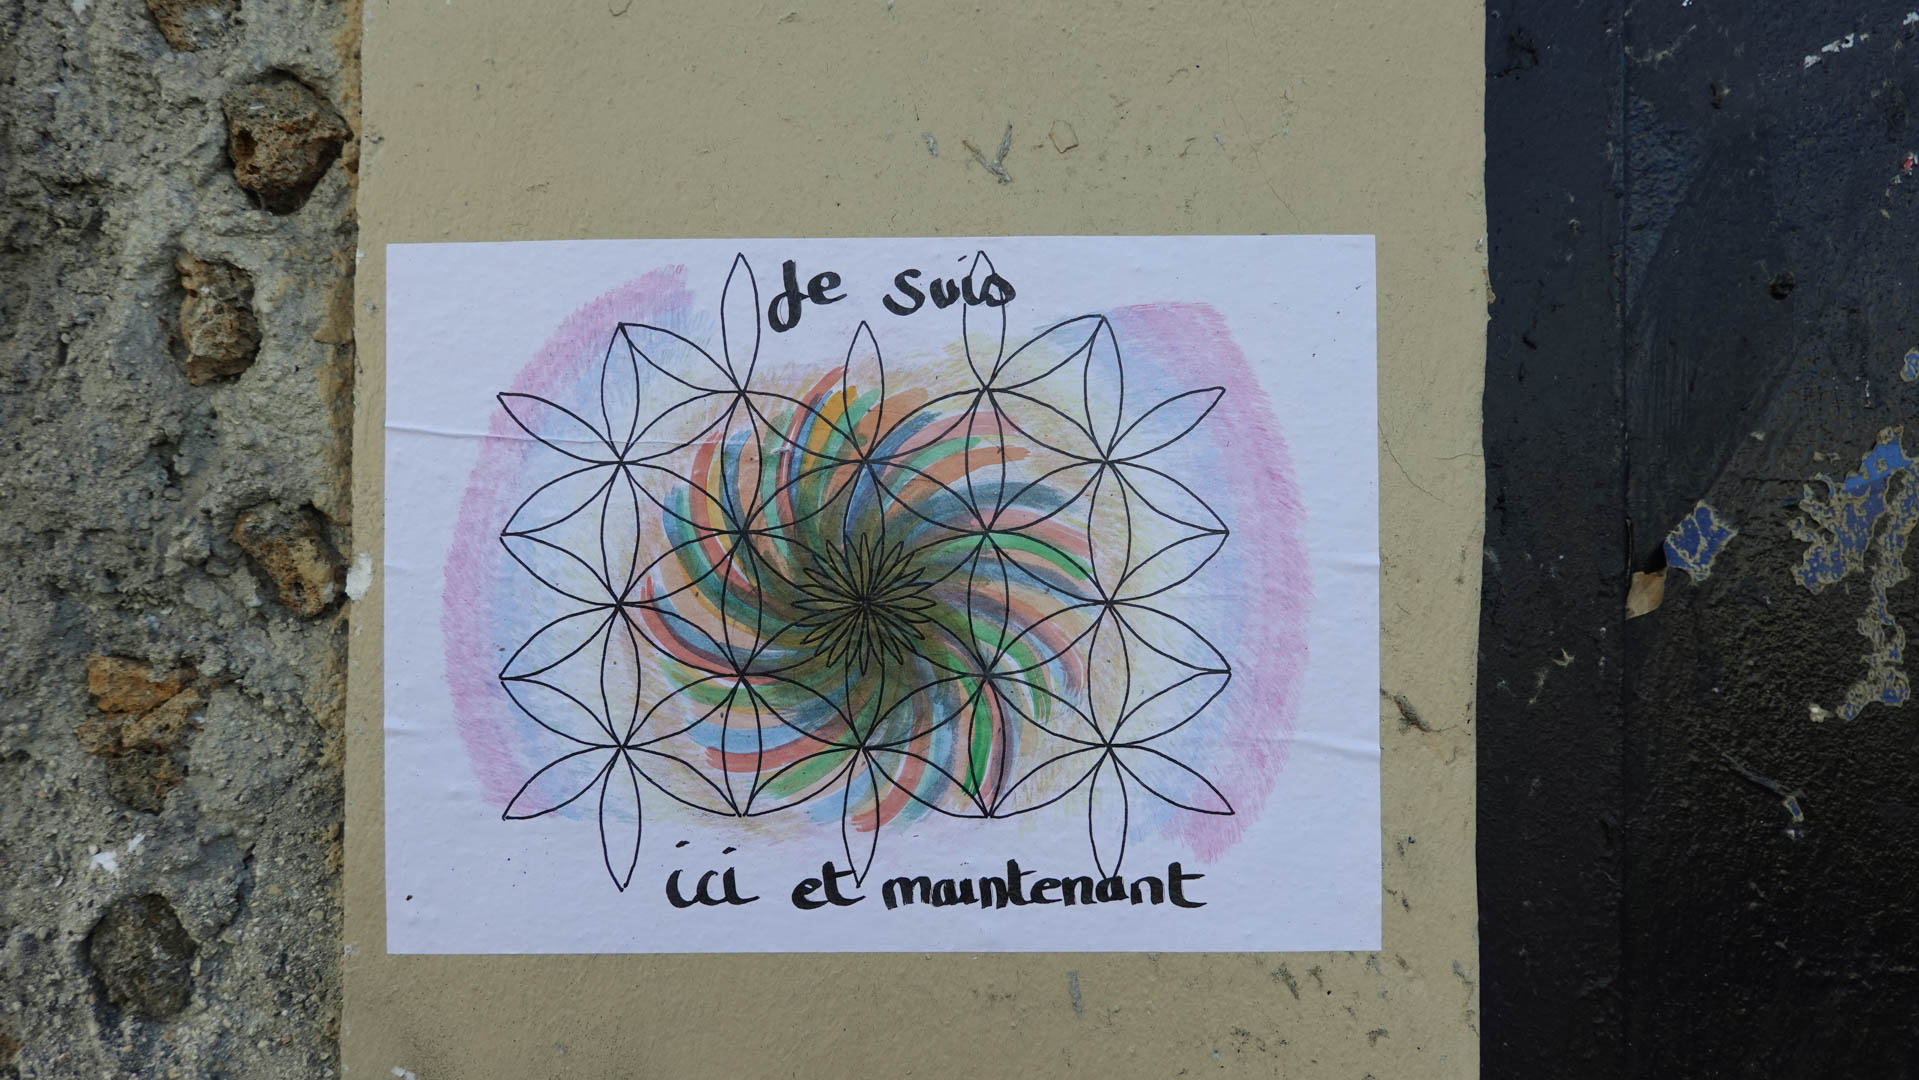 Je suis
ici et maintenant